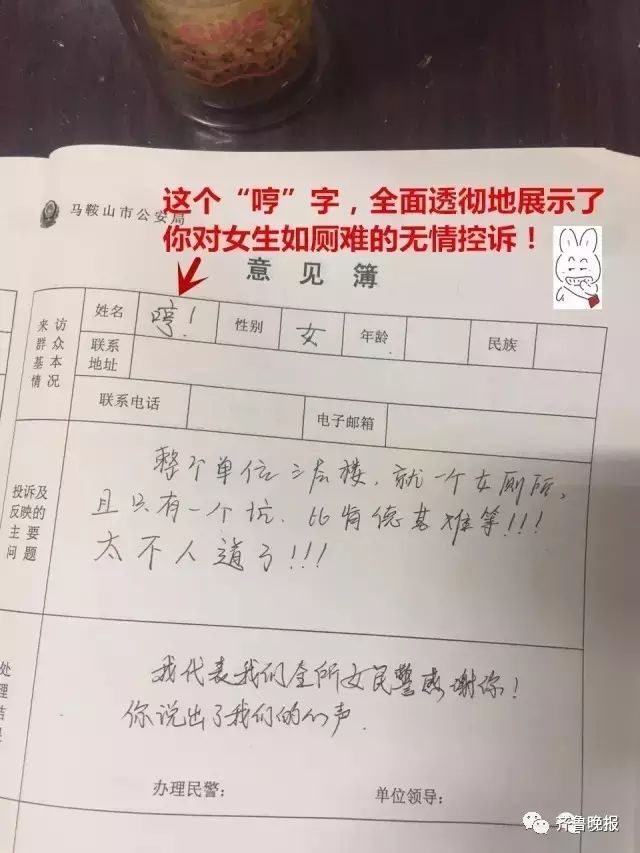 这个“哼”字，全面透彻地展示了
你对女生如厕难的无情控诉！
马鞍山市公安局
意见簿
来访群众基本情况
姓名 哼！ 性别 女 年龄 民族
联系地址
联系电话 电子邮箱
投诉及反映的主要问题
整个单位三层楼，就一个女厕所，
且只有一个坑，比肯德基难等!!!
太不人道了!!!
处理结果
我代表我们全所女民警感谢你！
你说出了我们的心声.
办理民警： 单位领导：
齐鲁晚报